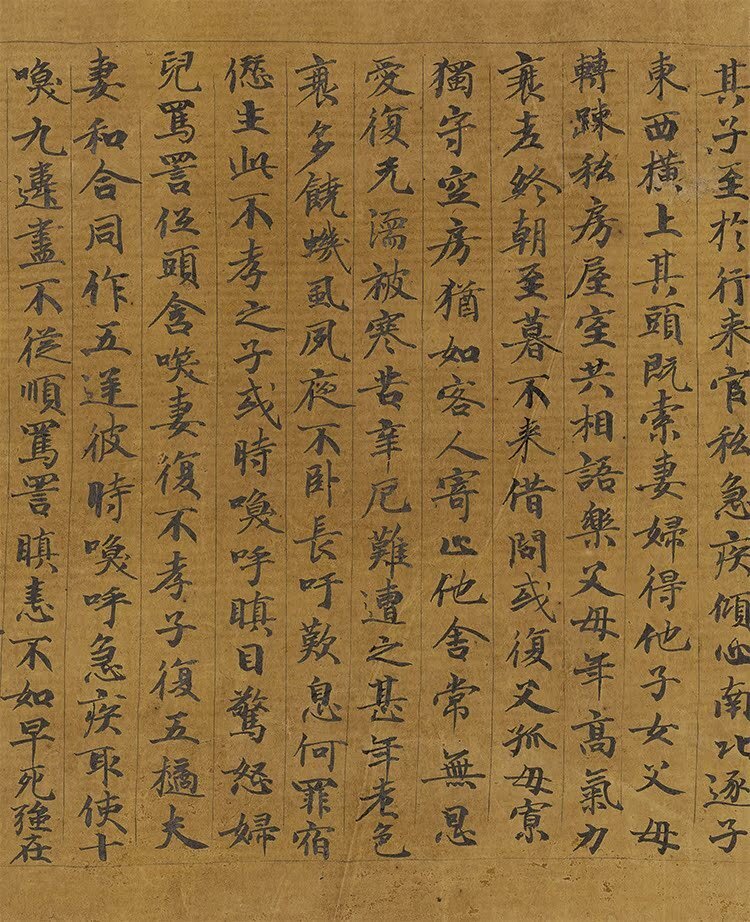 其子至於行来官私急疾傾心南北逐子
東西横上其頭既索妻婦得他子女父母
轉踈私房屋室共相語樂父母年髙氣力
衰老終朝至暮不来借問或復父孤母寡
獨守空房猶如客人寄止他舍常無恩
愛復无濡被寒苦辛厄難遭之甚年老色
衰多饒蟣虱夙夜不卧長吁歎息何罪宿
愆生此不孝之子或時喚呼瞋目驚怒婦
兒罵詈伭頭含唉妻復不孝子復五擿夫
妻和合同作五逆彼時喚呼急疾取使十
喚九違盡不從順罵詈瞋恚不如早死強在